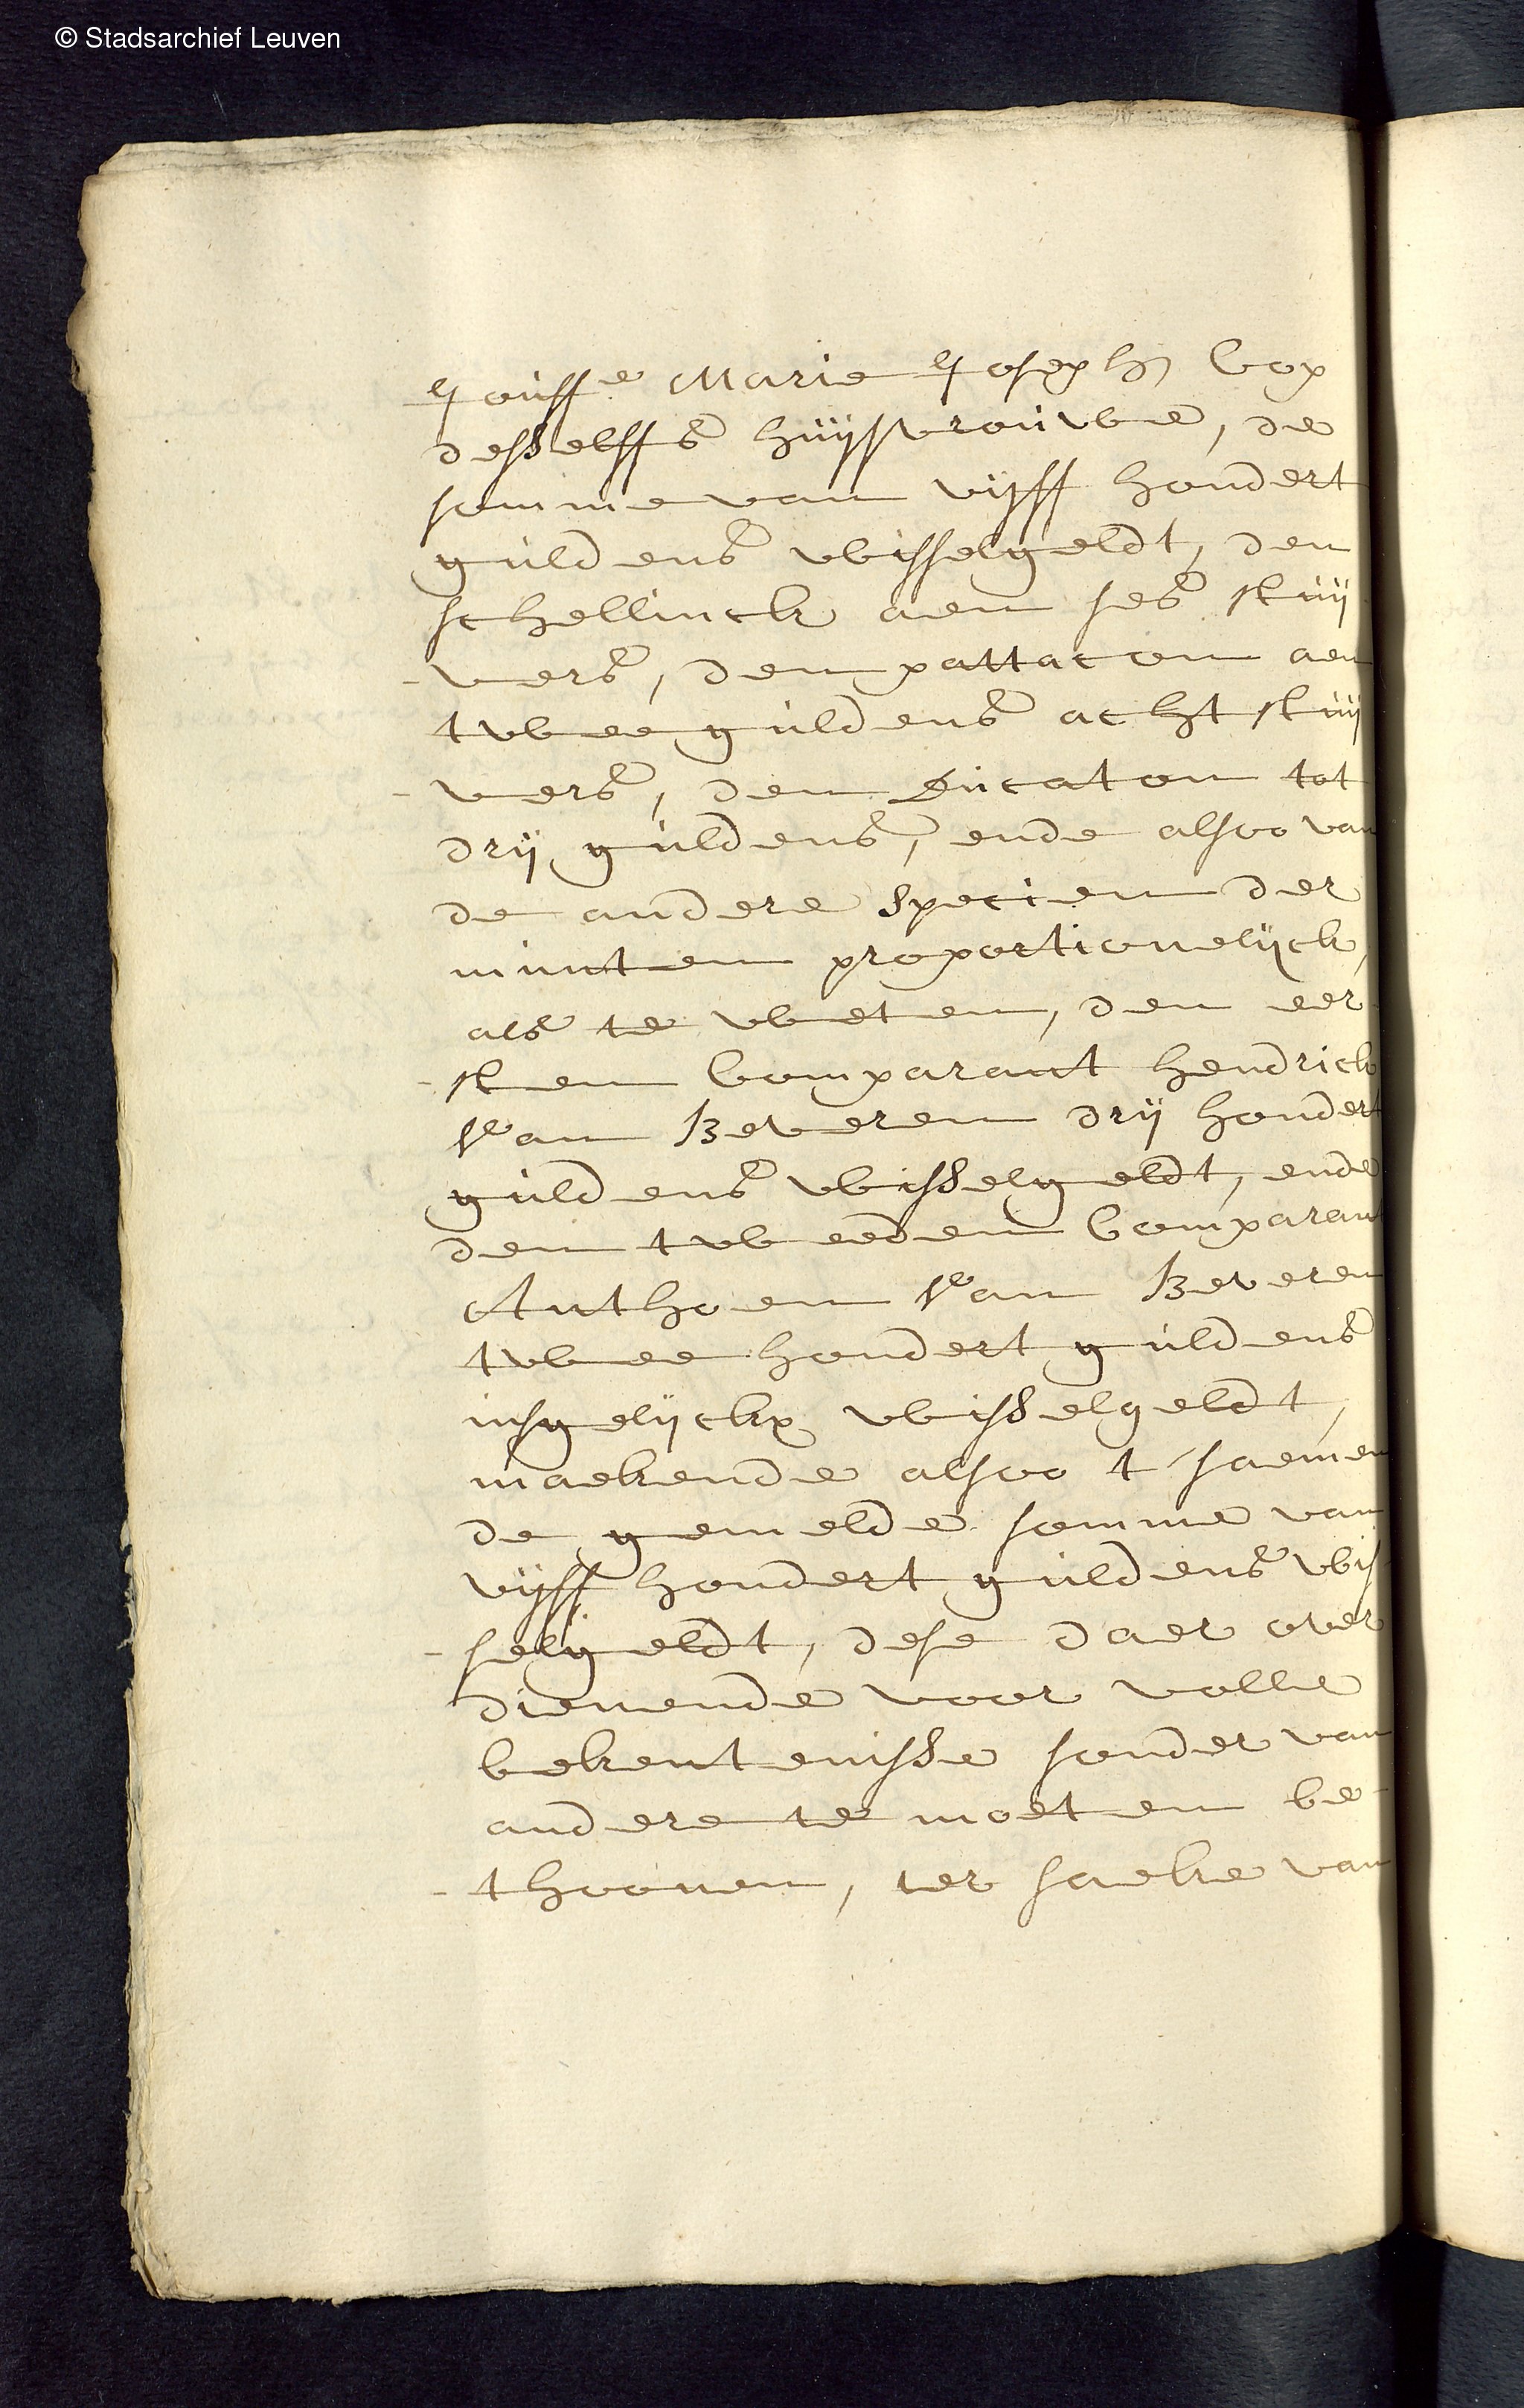 © Stadsarchief Leuven
Jouffe Marie Joseph Cox
desselffs huijsvrouwe, de
somme van vijff hondert
guldens wisselgeldt, den
schellinck aen ses stuij
-vers, den pattacon aen
twee guldens acht stuij
-vers, den Ducaton tot
drij guldens, ende alsoo van
de andere specien der
munten proportionelijck,
als te weten, den eer
-sten Comparant Hendrick
Van Beveren drij hondert
guldens wisselgeldt, ende
den tweeden Comparant
Anthoen Van Beveren
twee hondert guldens
insgelijckx wisselgeldt,
maekende alsoo t'saemen
de gemelde somme van
vijff hondert guldens wis
-selgeldt, dese daer over
dienende voor volle
bekentenisse sonder van
andere te moeten be-
-thoonen, ter saeke van